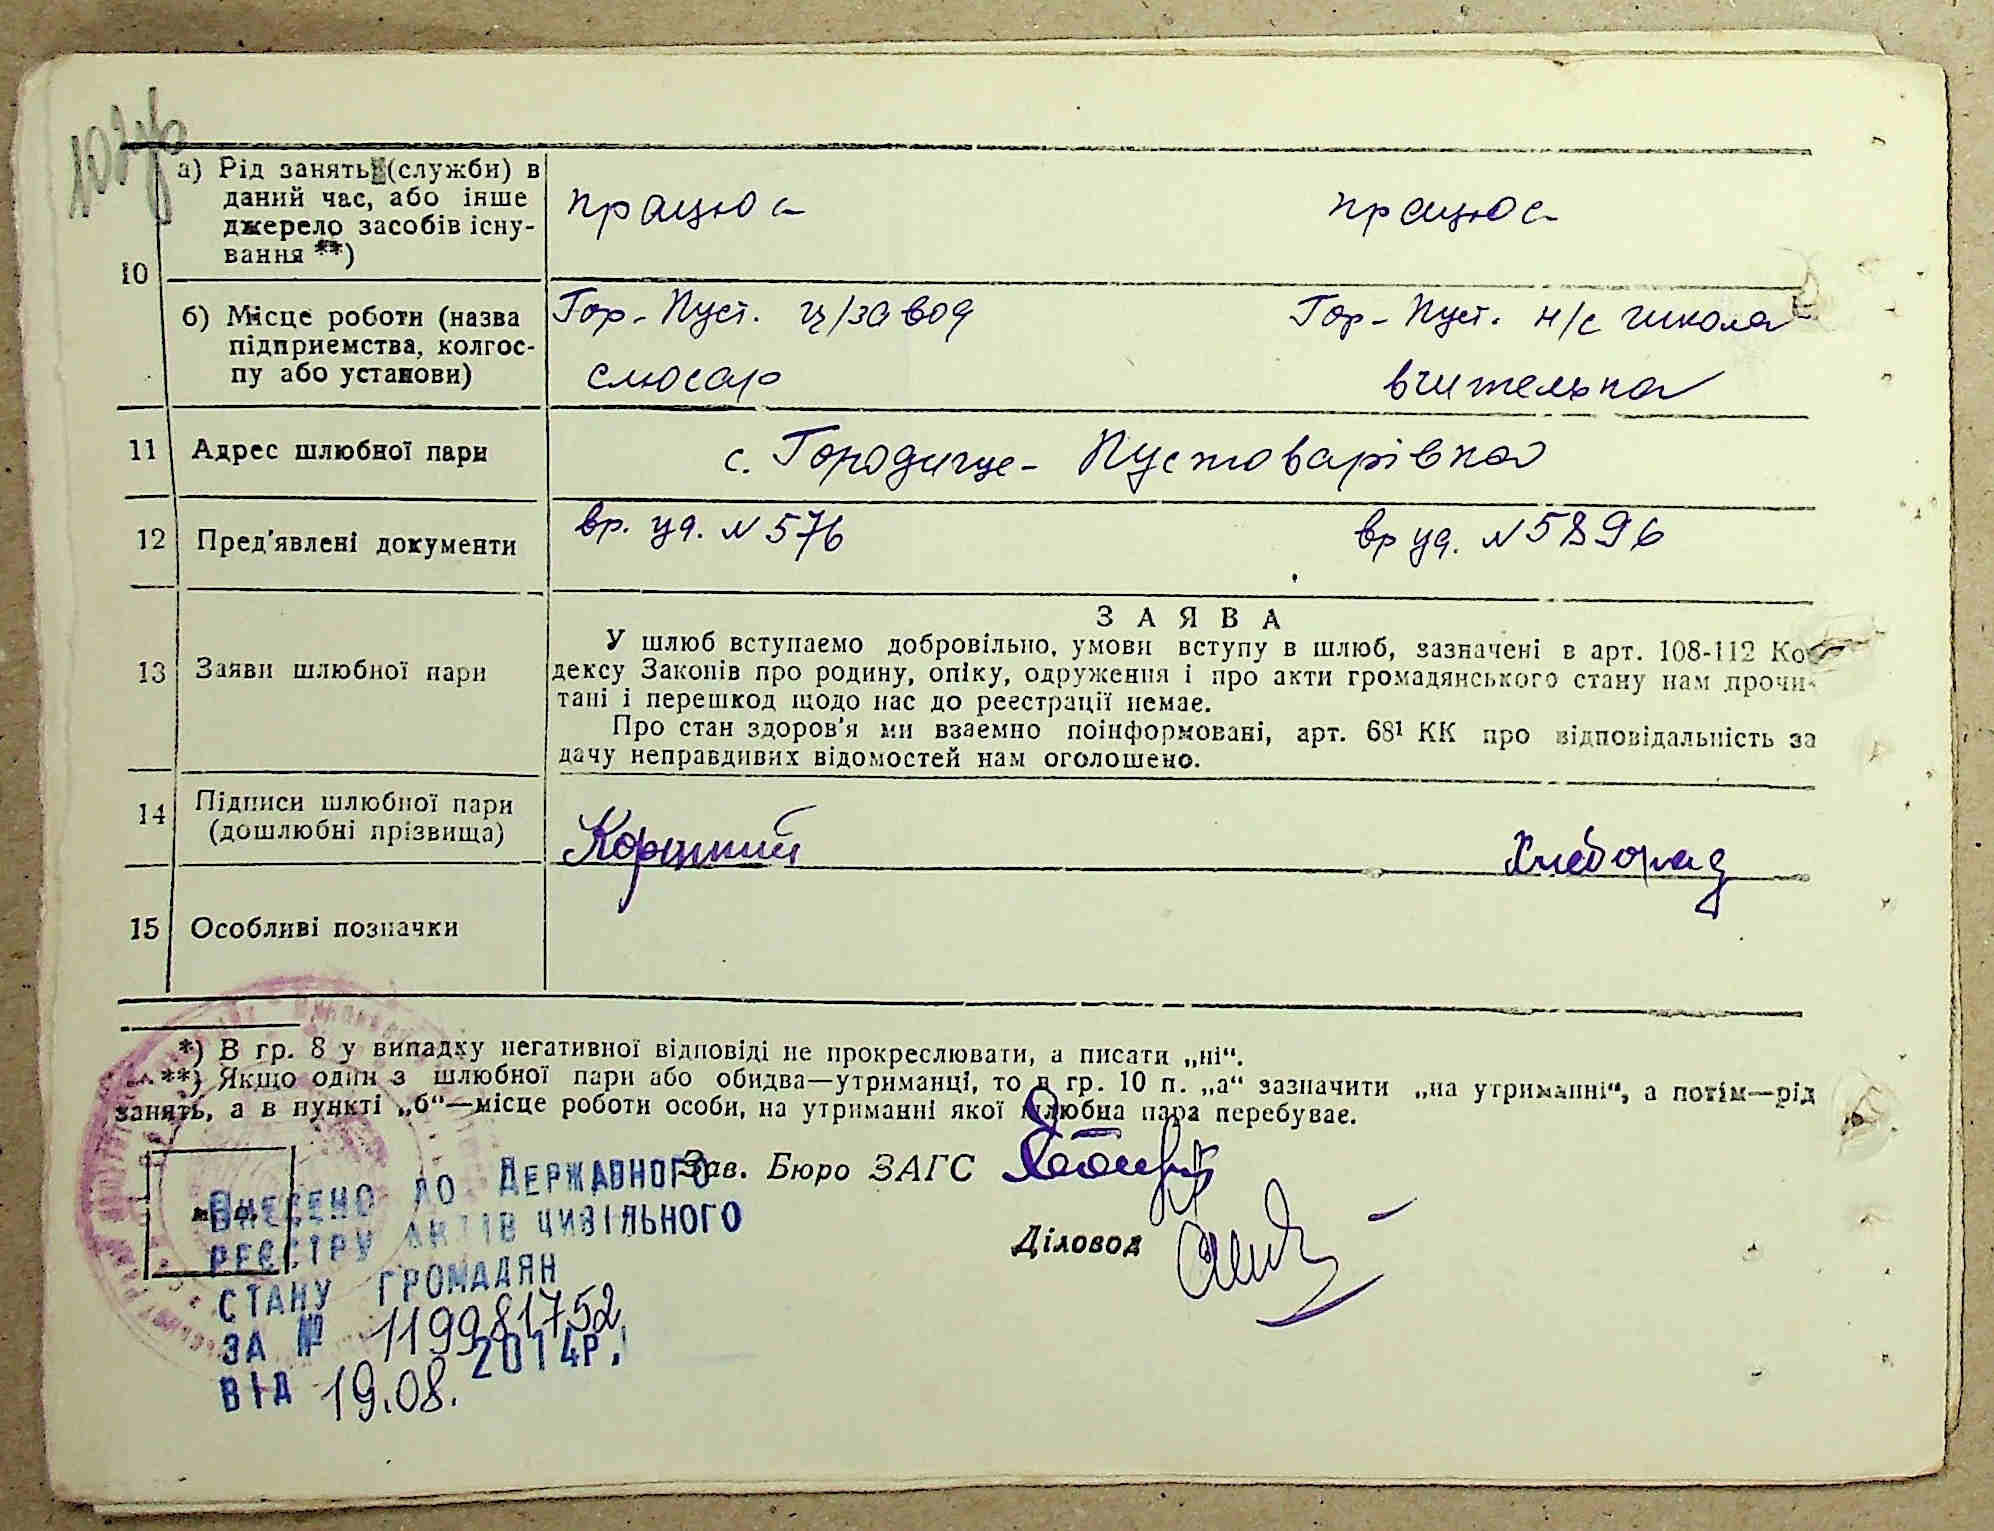 102зв
10
а) Рід занять (служби) в
даний час, або інше
джерело засобів існу-
вання **)
працює
працює
б) Місце роботи (назва
підприємства, колгос-
пу або установи)
Гор-Пуст. ц/завод
слюсар
Гор-Пуст. н/с школа
вчителька
11 Адрес шлюбної пари
с. Городище-Пустоварівка
12 Пред'явлені документи
вр. уд. №576
вр уд. №5896
13 Заяви шлюбної пари
ЗАЯВА
У шлюб вступаємо добровільно, умови вступу в шлюб, зазначені в арт. 108-112 Ко-
дексу Законів про родину, опіку, одруження і про акти громадянського стану нам прочи-
тані і перешкод щодо нас до реєстрації немає.
Про стан здоров'я ми взаємно поінформовані, арт. 68¹ КК про відповідальність за
дачу неправдивих відомостей нам оголошено.
14 Підписи шлюбної пари
(дошлюбні прізвища)
15 Особливі позначки
*) В гр. 8 у випадку негативної відповіді не прокреслювати, а писати „ні“.
**) Якщо один з шлюбної пари або обидва—утриманці, то в гр. 10 п. „а“ зазначити „на утриманні“, а потім—рід
занять, а в пункті „б“—місце роботи особи, на утриманні якої шлюбна пара перебуває.
Зав. Бюро ЗАГС
Діловод
ВНЕСЕНО ДО ДЕРЖАВНОГО
РЕЄСТРУ АКТІВ ЦИВІЛЬНОГО
СТАНУ ГРОМАДЯН
ЗА № 119981752
ВІД 19.08. 2014Р.